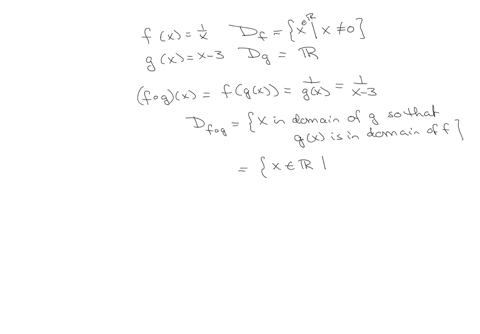 f(x) = 1/x   D_f = {x ∈ ℝ | x ≠ 0}
g(x) = x-3   D_g = ℝ
(f∘g)(x) = f(g(x)) = 1/g(x) = 1/(x-3)
D_f∘g = {x in domain of g so that
g(x) is in domain of f}
= {x ∈ ℝ |